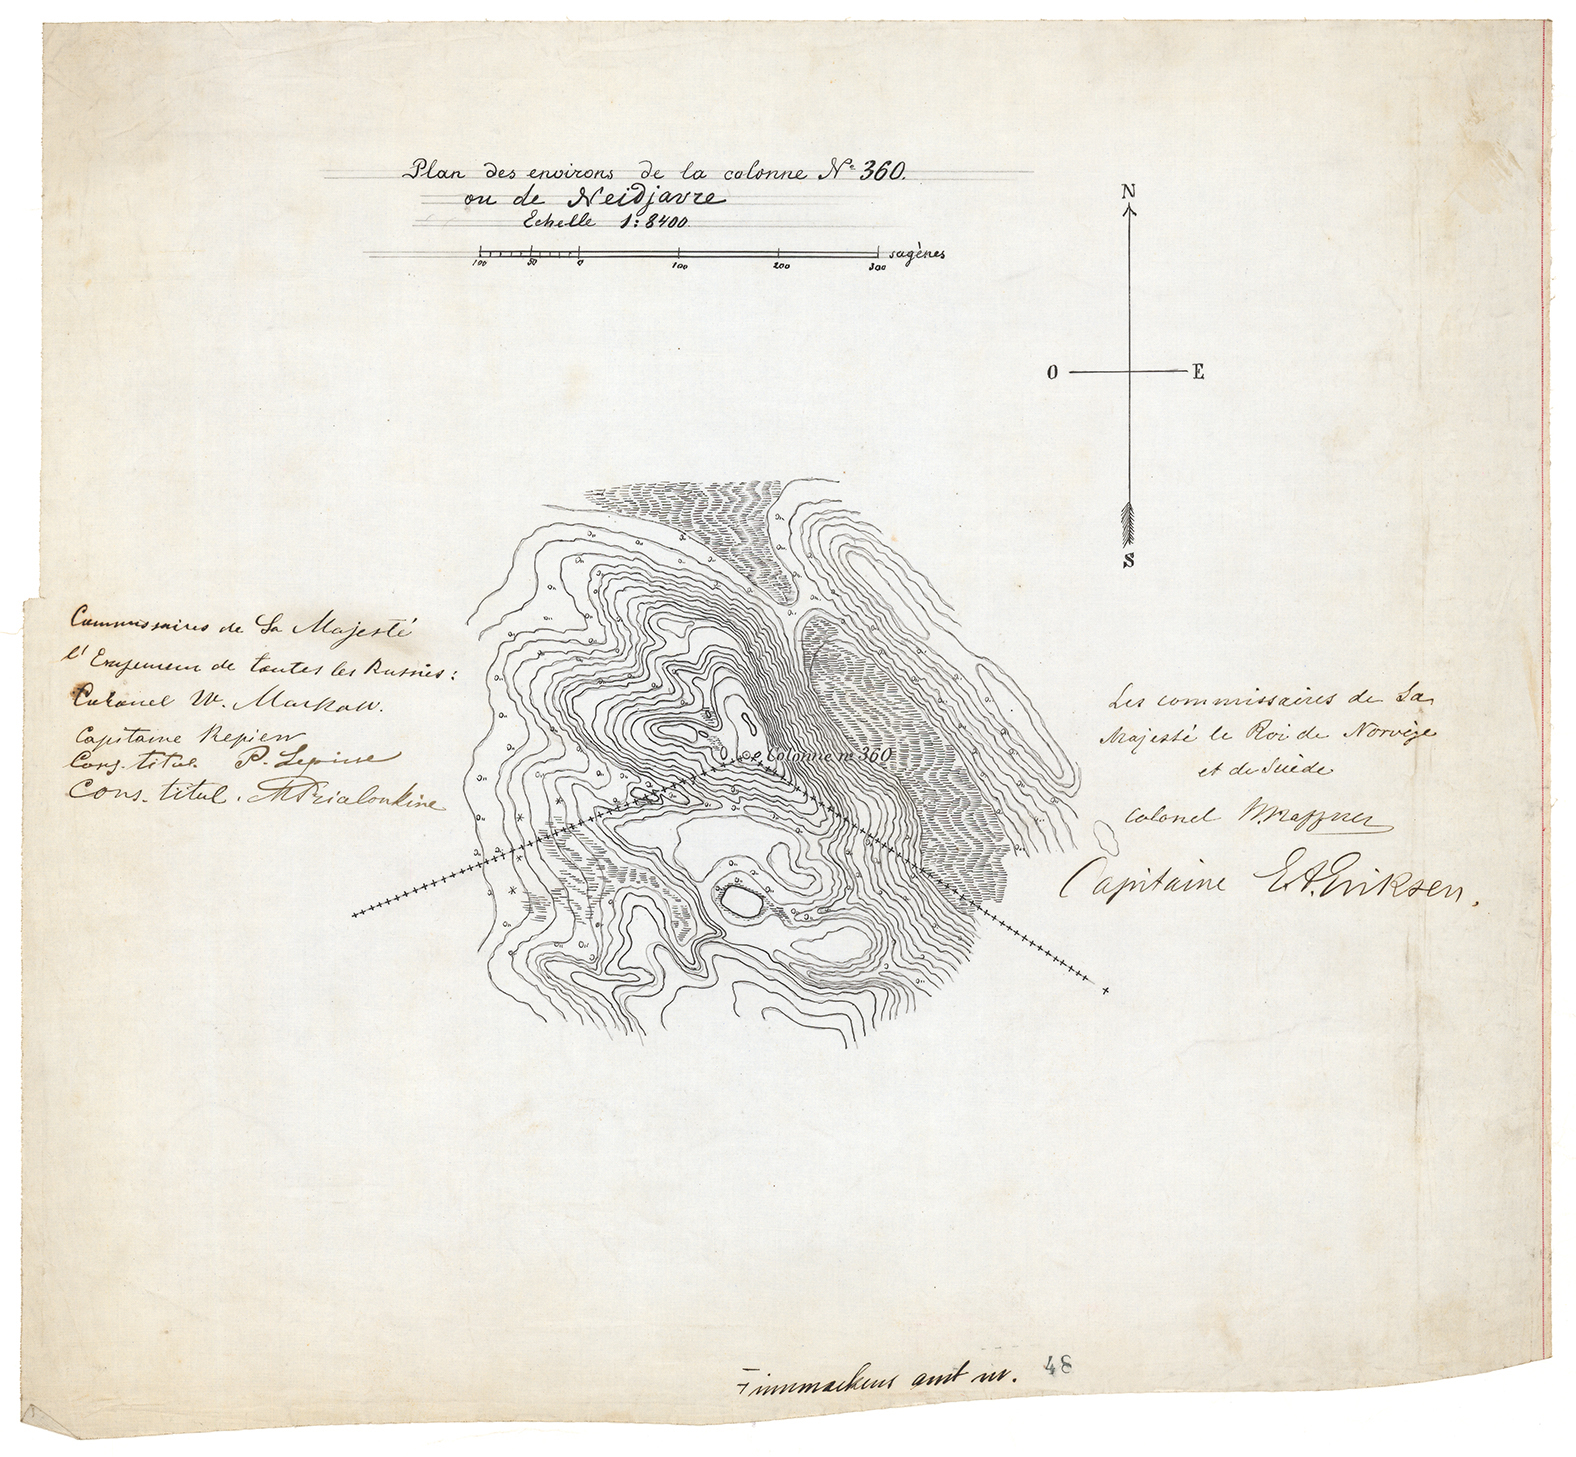 Plan des environs de la colonne No 360.
ou de Neidjavre
Echelle 1:8400.
100 50 0 100 200 300 sagènes
N
O E
S
Commissaires de Sa Majesté
l'Empereur de toutes les Russies:
Colonel W. Markow.
Capitaine Repiew
Cons. titul. P. Lepine
Cons. titul.
Colonne nr 360
Les commissaires de Sa
Majesté le Roi de Norvège
et de Suède
Colonel
Capitaine E.A. Eriksen.
Finmarkens amt nr. 48